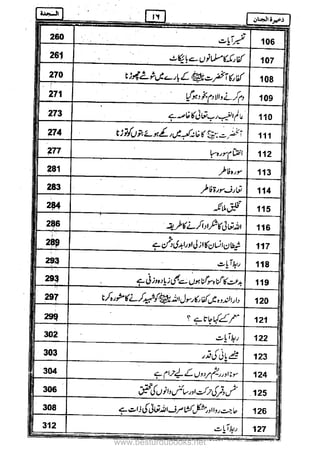 ذخیرۃ الجنان ۱۶ السجدۃ
106 تفسیر آیات 260
107 کفار مکہ کا مسلمانوں سے بائیکاٹ 261
108 کفار کا آنحضرت ﷺ کے بارے میں شوشے چھوڑنا 270
109 دم کرنے والا دم بخود ہو گیا 271
110 عالم الغیب رب تعالیٰ کا خاصہ ہے 273
111 آنحضرت ﷺ کا خانہ کعبہ میں رکھے ہوئے بتوں کو توڑنا 274
112 اختتام سورہ سبا 277
113 سورہ فاطر 281
114 تعارف سورۃ فاطر 283
115 تخلیق ملائکہ 284
116 اللہ تعالیٰ کا شکر ادا کرنے کا طریقہ 286
117 شیطان انسان کا ازلی اور ابدی دشمن ہے 289
118 ربط آیات 293
119 بدعت کا گناہ سو گناہوں سے بھی زیادہ وزنی ہے 293
120 دار الندوہ میں کفار کا رسول اللہ ﷺ کو شہید کرنے کا مشورہ کرنا 297
121 معمر کسے کہا جاتا ہے ؟ 299
122 ربط آیات 302
123 میٹھے پانی کی قدر 303
124 سونا اور ریشم مردوں کے لیے حرام ہے 304
125 شمس و قمر کی حرکت اور سائنس دانوں کی تحقیق 306
126 حاجت روا اور مشکل کشا صرف اللہ تعالیٰ کی ذات ہے 308
127 ربط آیات 312
www.besturdubooks.net